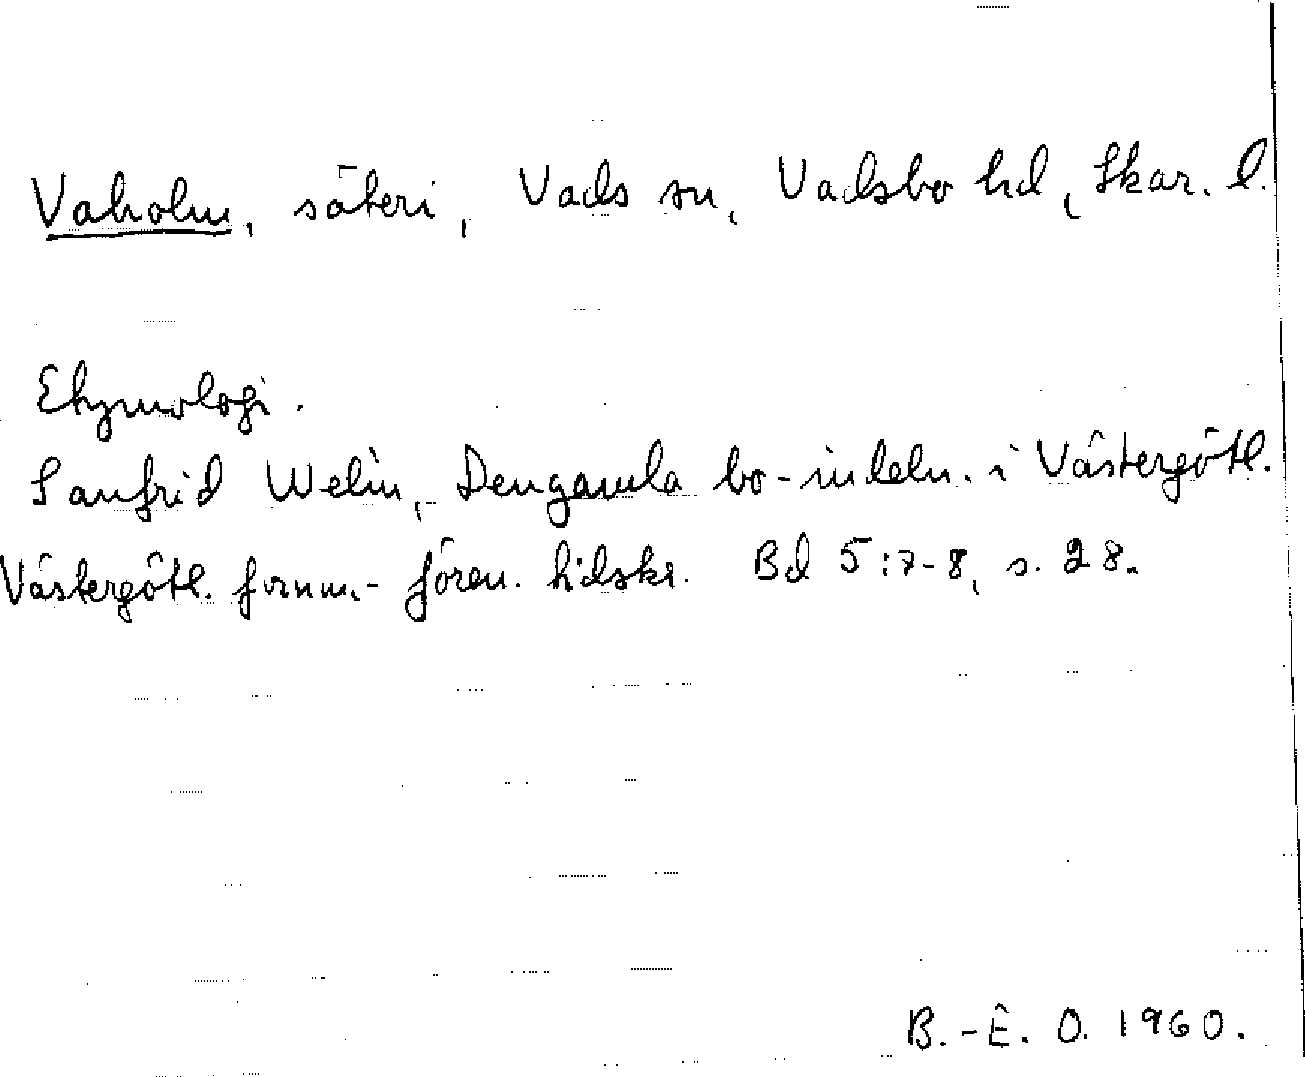 Vaholm, säteri, Vads sn, Vadsbo hd, Skar. l.
Etymologi.
Sanfrid Welin, Den gamla bo-indeln. i Västergötl.
Västergötl. fornm.-fören. tidskr. Bd 5:7-8, s. 28.
B.-E. O. 1960.